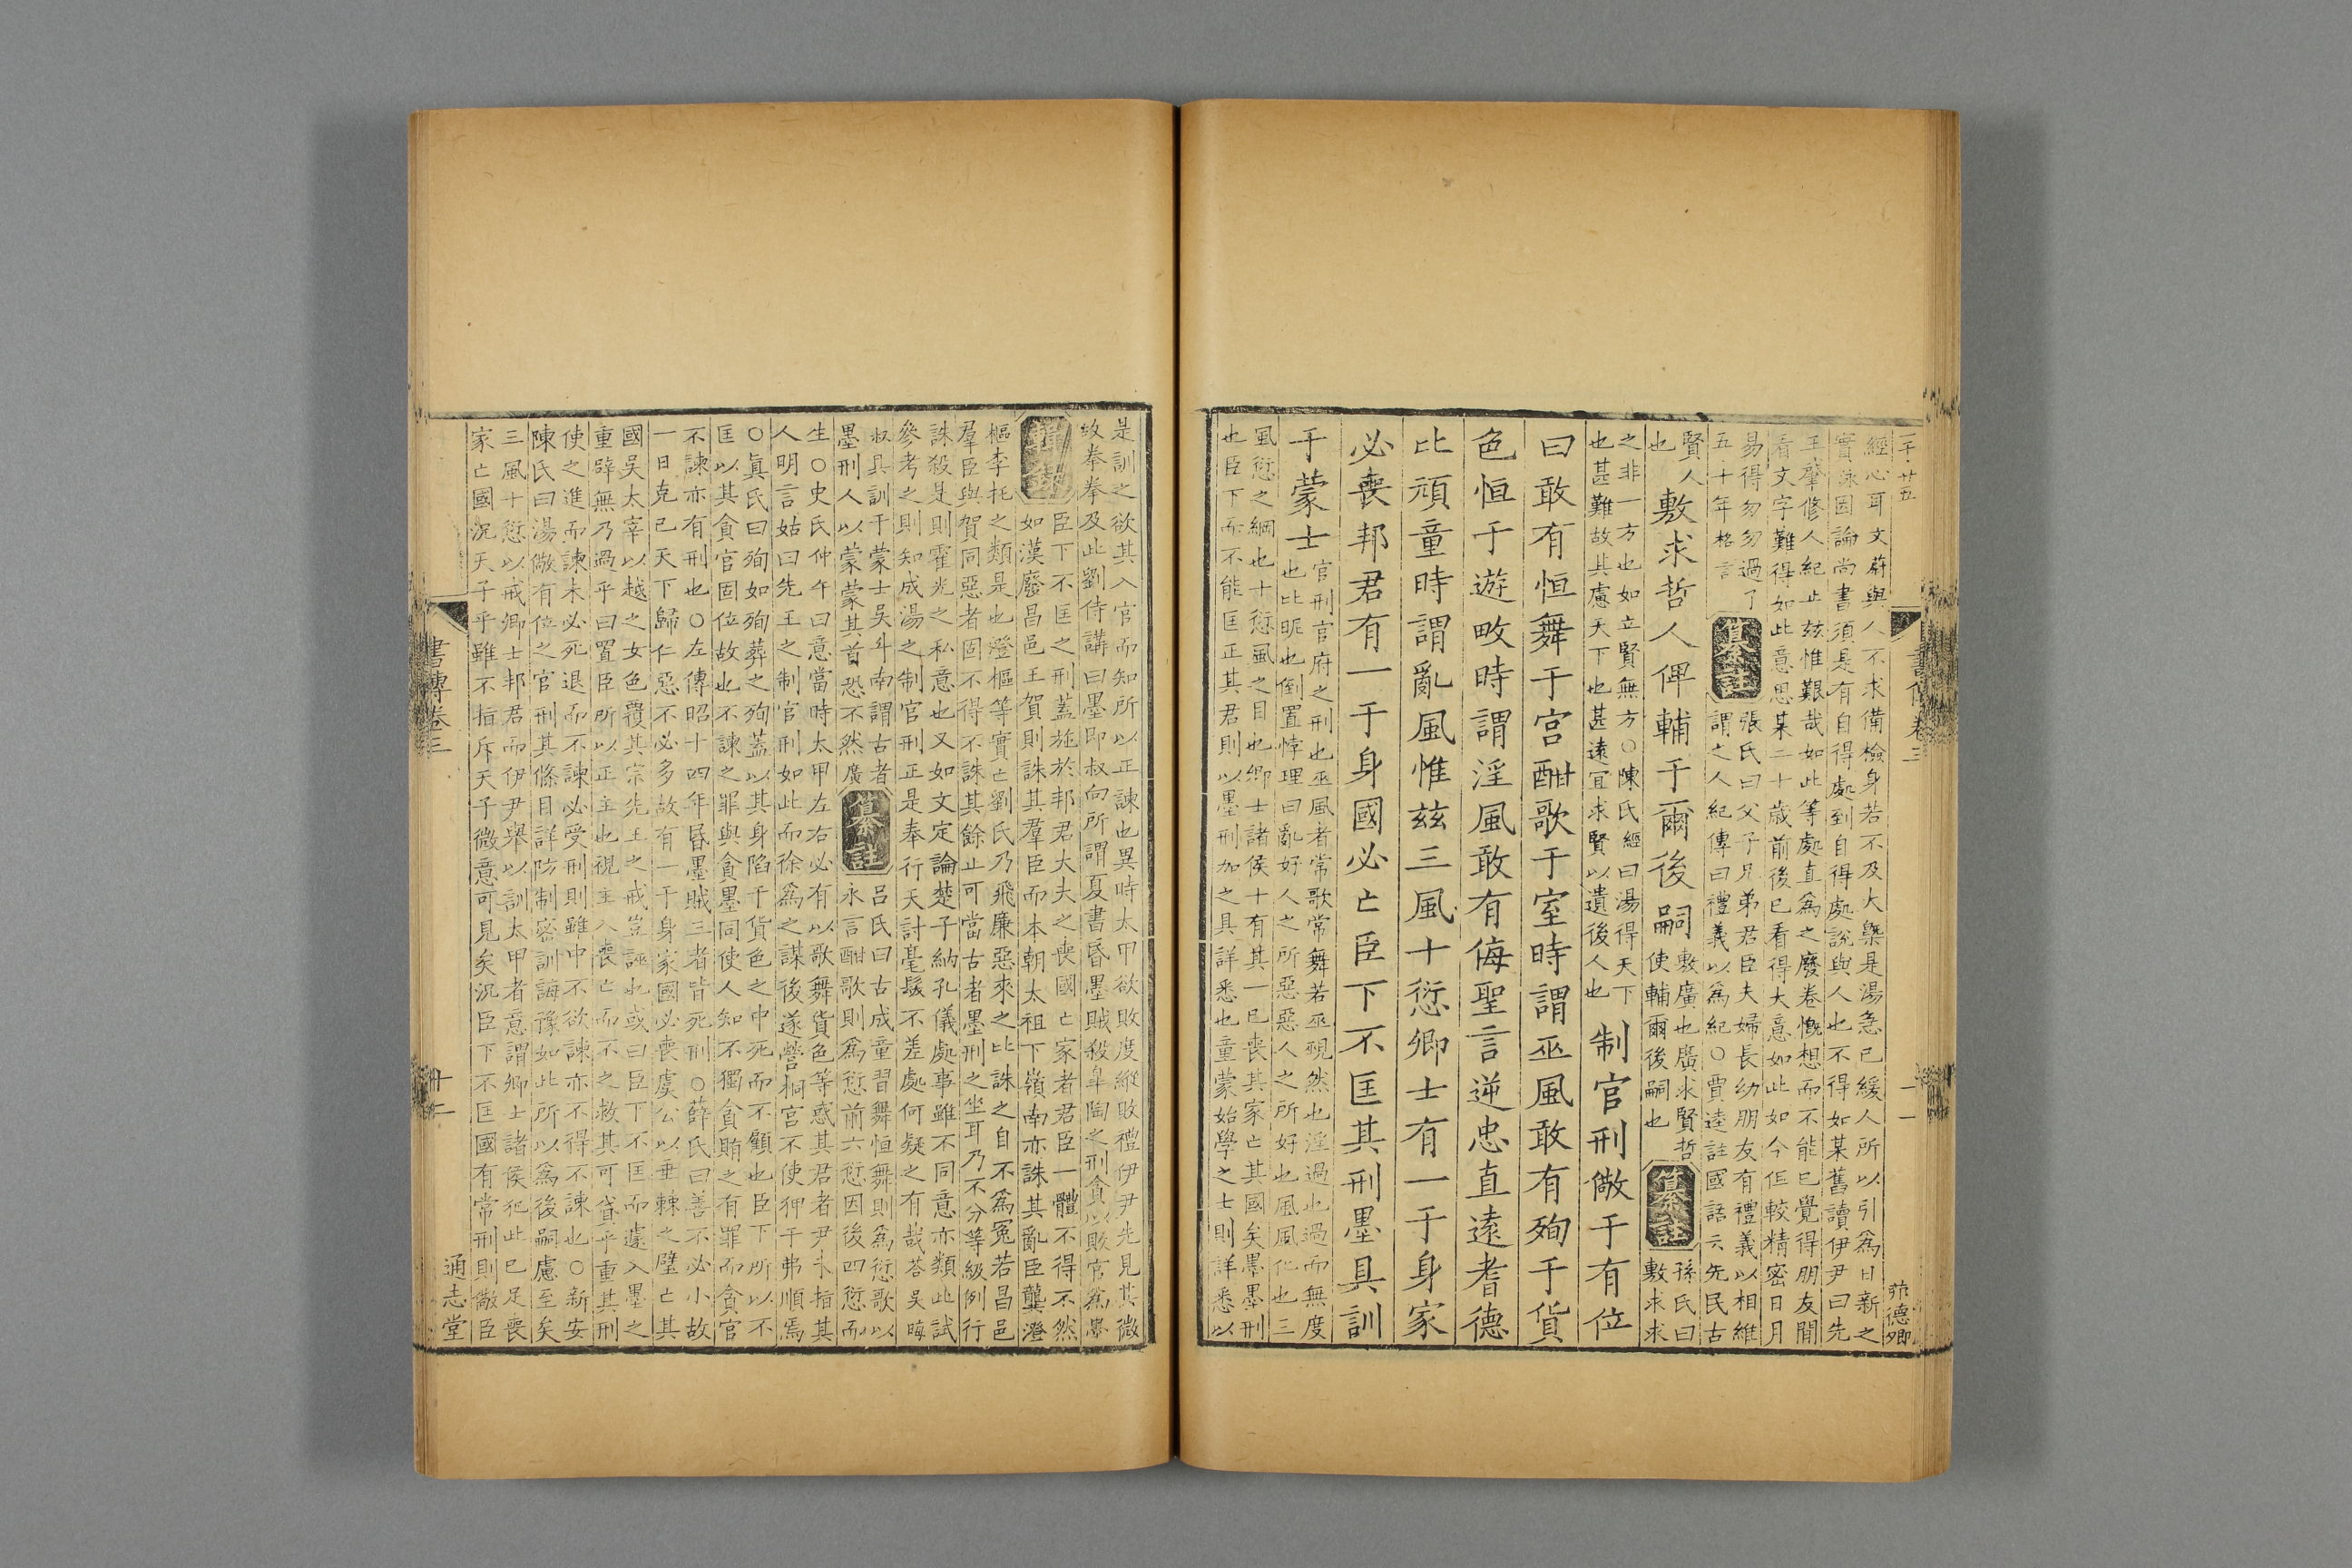 經心耳文蔚與人不求備檢身若不及大槩是湯急已緩人所以引爲日新之
實泳因論尚書須是有自得處到自得處說與人也不得如某舊讀伊尹曰先
王肇修人紀止兹惟艱哉如此等處直爲之廢卷慨想而不能已覺得朋友間
看文字難得如此意思某二十歲前後已看得大意如此如今但較精密日月
易得匆匆過了
五十年格言
纂註
張氏曰父子兄弟君臣夫婦長幼朋友有禮義以相維
謂之人紀傳曰禮義以爲紀○賈逵註國語云先民古
賢人
也
敷求哲人俾輔于爾後嗣
敷廣也廣求賢哲
使輔爾後嗣也
纂註
孫氏曰
敷求求
之非一方也如立賢無方○陳氏經曰湯得天下
也甚難故其慮天下也甚遠宜求賢以遺後人也
制官刑儆于有位
曰敢有恒舞于宮酣歌于室時謂巫風敢有殉于貨
色恒于遊畋時謂淫風敢有侮聖言逆忠直遠耆德
比頑童時謂亂風惟兹三風十愆卿士有一于身家
必喪邦君有一于身國必亡臣下不匡其刑墨具訓
于蒙士
官刑官府之刑也巫風者常歌常舞若巫覡然也淫過也過而無度
也比昵也倒置悖理曰亂好人之所惡惡人之所好也風風化也三
風愆之綱也十愆風之目也卿士諸侯十有其一已喪其家亡其國矣墨墨刑
也臣下而不能匡正其君則以墨刑加之具詳悉也童蒙始學之士則詳悉以
書傳卷三
是訓之欲其入官而知所以正諫也異時太甲欲敗度縱敗禮伊尹先見其微
故拳拳及此劉侍講曰墨即叔向所謂夏書昏墨賊殺臯陶之刑貪以敗官爲墨
輯錄
臣下不匡之刑蓋施於邦君大夫之喪國亡家者君臣一體不得不然
如漢廢昌邑王賀則誅其羣臣而本朝太祖下嶺南亦誅其亂臣龔澄
樞李托之類是也澄樞等實亡劉氏乃飛廉惡來之比誅之自不爲冤若昌邑
羣臣與賀同惡者固不得不誅其餘止可當古者墨刑之坐耳乃不分等級例行
誅殺是則霍光之私意也又如文定論楚子納孔儀處事雖不同意亦類此試
參考之則知成湯之制官刑正是奉行天討毫髮不差處何疑之有哉荅吳晦
叔具訓于蒙士吳斗南謂古者
墨刑人以蒙蒙其首恐不然廣
纂註
呂氏曰古成童習舞恒舞則爲愆歌以
永言酣歌則爲愆前六愆因後四愆而
生○史氏仲午曰意當時太甲左右必有以歌舞貨色等惑其君者尹未指其
人明言姑曰先王之制官刑如此而徐爲之謀後遂營桐宮不使狎于弗順焉
○眞氏曰殉如殉葬之殉蓋以其身陷于貨色之中死而不顧也臣下所以不
匡以其貪官固位故也不諫之罪與貪墨同使人知不獨貪賄之有罪而貪官
不諫亦有刑也○左傳昭十四年昏墨賊三者皆死刑○薛氏曰善不必小故
一日克已天下歸仁惡不必多故有一于身家國必喪虞公以垂棘之璧亡其
國吳太宰以越之女色覆其宗先王之戒豈誣也或曰臣下不匡而遽入墨之
重辟無乃過乎曰置臣所以正主也視主入喪亡而不之救其可貸乎重其刑
使之進而諫未必死退而不諫必受刑則雖中不欲諫亦不得不諫也○新安
陳氏曰湯儆有位之官刑其條目詳防制密訓誨豫如此所以爲後嗣慮至矣
三風十愆以戒卿士邦君而伊尹舉以訓太甲者意謂卿士諸侯犯此已足喪
家亡國況天子乎雖不指斥天子微意可見矣況臣下不匡國有常刑則儆臣
書傳卷三
十一
通志堂